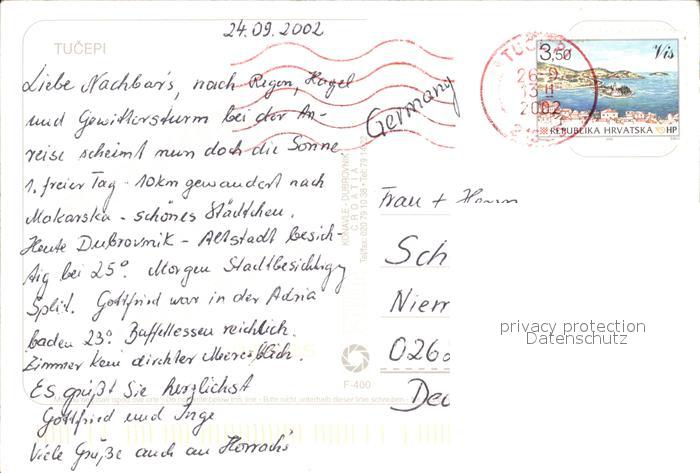 24.09.2002
TUČEPI
Liebe Nachbar's, nach Regen, Hagel
und Gewittersturm bei der An-
reise scheint nun doch die Sonne
1. freier Tag - 10km gewandert nach
Makarska - schönes Städtchen.
Heute Dubrovnik - Altstadt besich-
tig bei 25°. Morgen Stadtbesichtigg
Split. Gottfried war in der Adria
baden 23° Buffettessen reichlich.
Zimmer kein direkter Meeresblick.
Es grüßt Sie herzlichst
Gottfried und Inge
Viele Grüße auch an Horrach's
Germany
3,50 Vis
26-9
13-11
2002
REPUBLIKA HRVATSKA HP
KONAVLE - DUBROVNIK
CROATIA
Frau + Herrn
Sch
Niem
026
Deu
F-400
privacy protection
Datenschutz